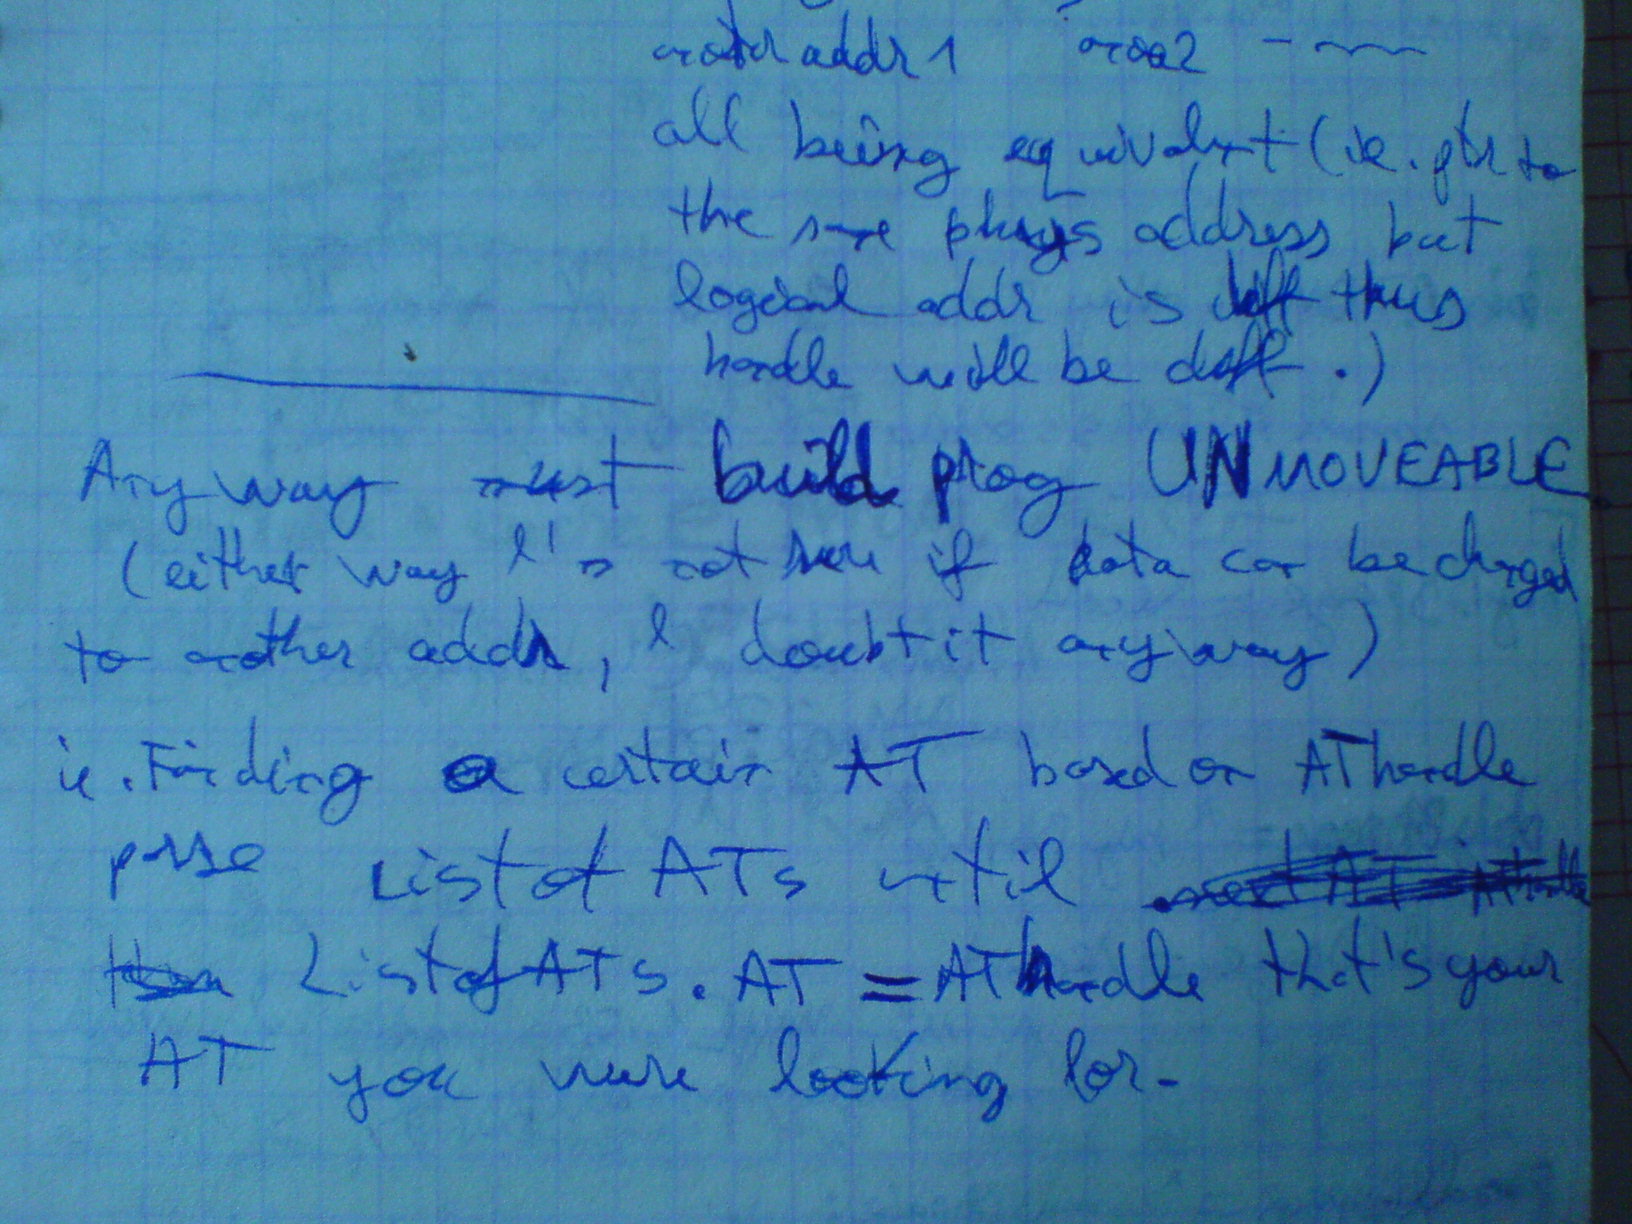 another addr 1 2
all being equivalent (ie. ptr to
the same phys address but
logical addr is diff thus
handle will be diff.)
Anyway must build prog UNMOVEABLE
(either way I'm not sure if data can be changed
to another addr, I doubt it anyway)
ie. Finding a certain AT based on AThandle
parse ListofATs until
ListofATs.AT = AThandle that's your
AT you were looking for.